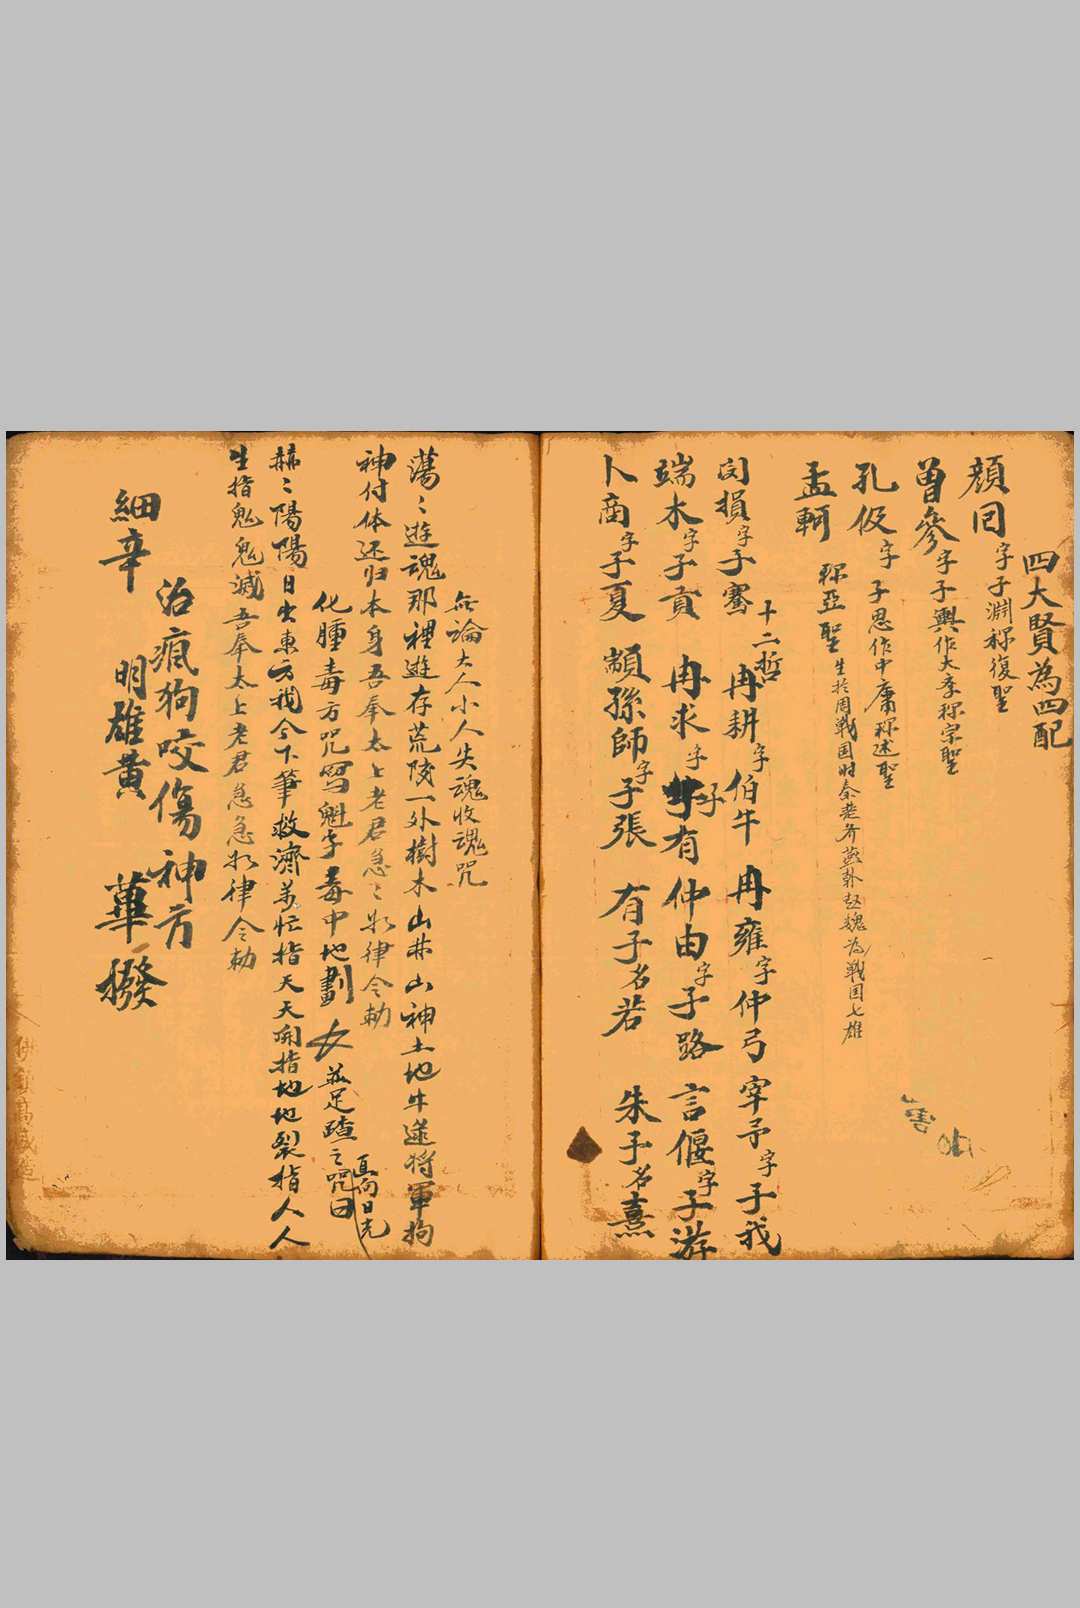 四大賢為四配
顔回字子淵称復聖
曾參字子輿作大孝称宗聖
孔伋字子思作中庸称述聖
孟軻称亞聖生於周戦国时秦楚齐燕韩赵魏为戦国七雄
十二哲
閔損字子騫 冉耕字伯牛 冉雍字仲弓 宰予字子我
端木字子貢 冉求字子有 仲由字子路 言偃字子游
卜商字子夏 顓孫師字子張 有子名若 朱子名熹
無論大人小人失魂收魂咒
蕩〻遊魂那裡遊存荒陵一外樹木山林山神土地牛遂将軍拘
神付体还归本身吾奉太上老君急〻如律令勅
化腫毒方咒寫魁字毒中地劃 並足踏之咒曰
赫〻陽陽日出東方我今下筆救濟万忙指天天開指地地裂指人人
生指鬼鬼滅吾奉太上老君急急如律令勅
治瘋狗咬傷神方
細辛 明雄黄